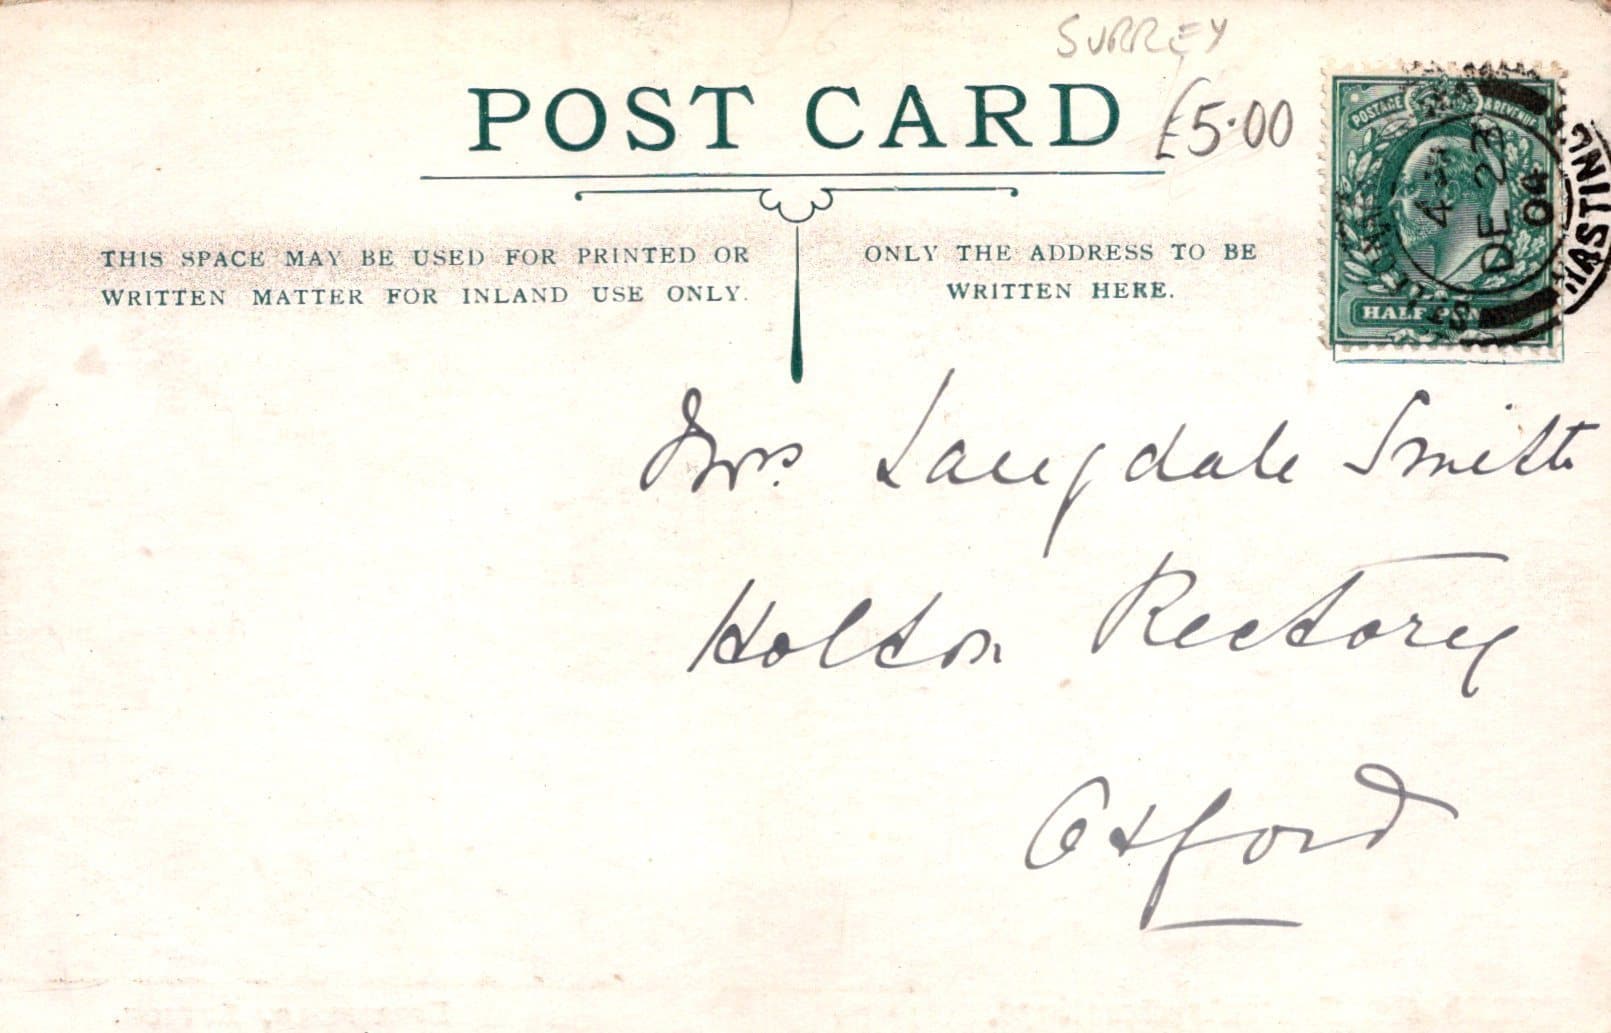 SURREY
POST CARD
£5·00
POSTAGE & REVENUE
HALF PENNY
HASTINGS
DE 23
04
THIS SPACE MAY BE USED FOR PRINTED OR
WRITTEN MATTER FOR INLAND USE ONLY.
ONLY THE ADDRESS TO BE
WRITTEN HERE.
Mrs. Langdale Smith
Holton Rectory
Oxford